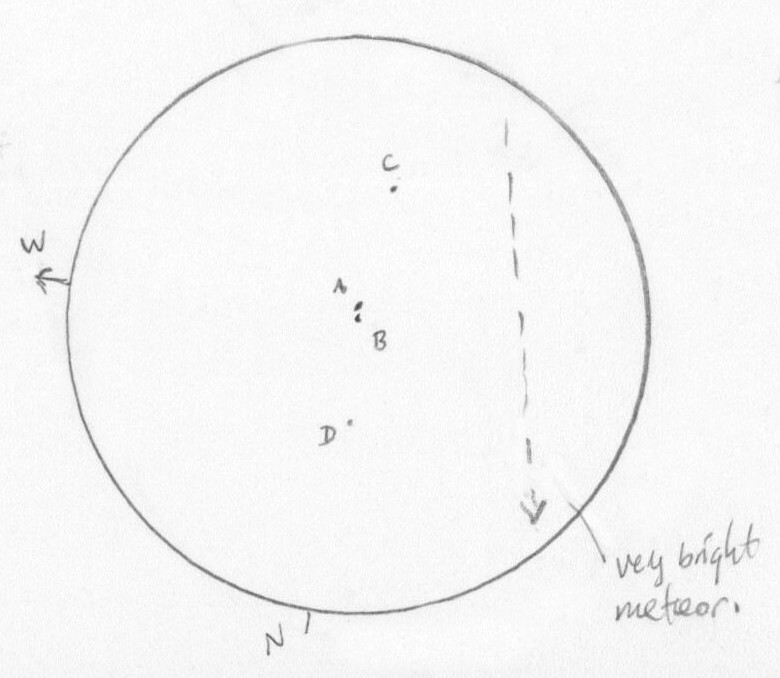 C
W
A
B
D
very bright
meteor.
N